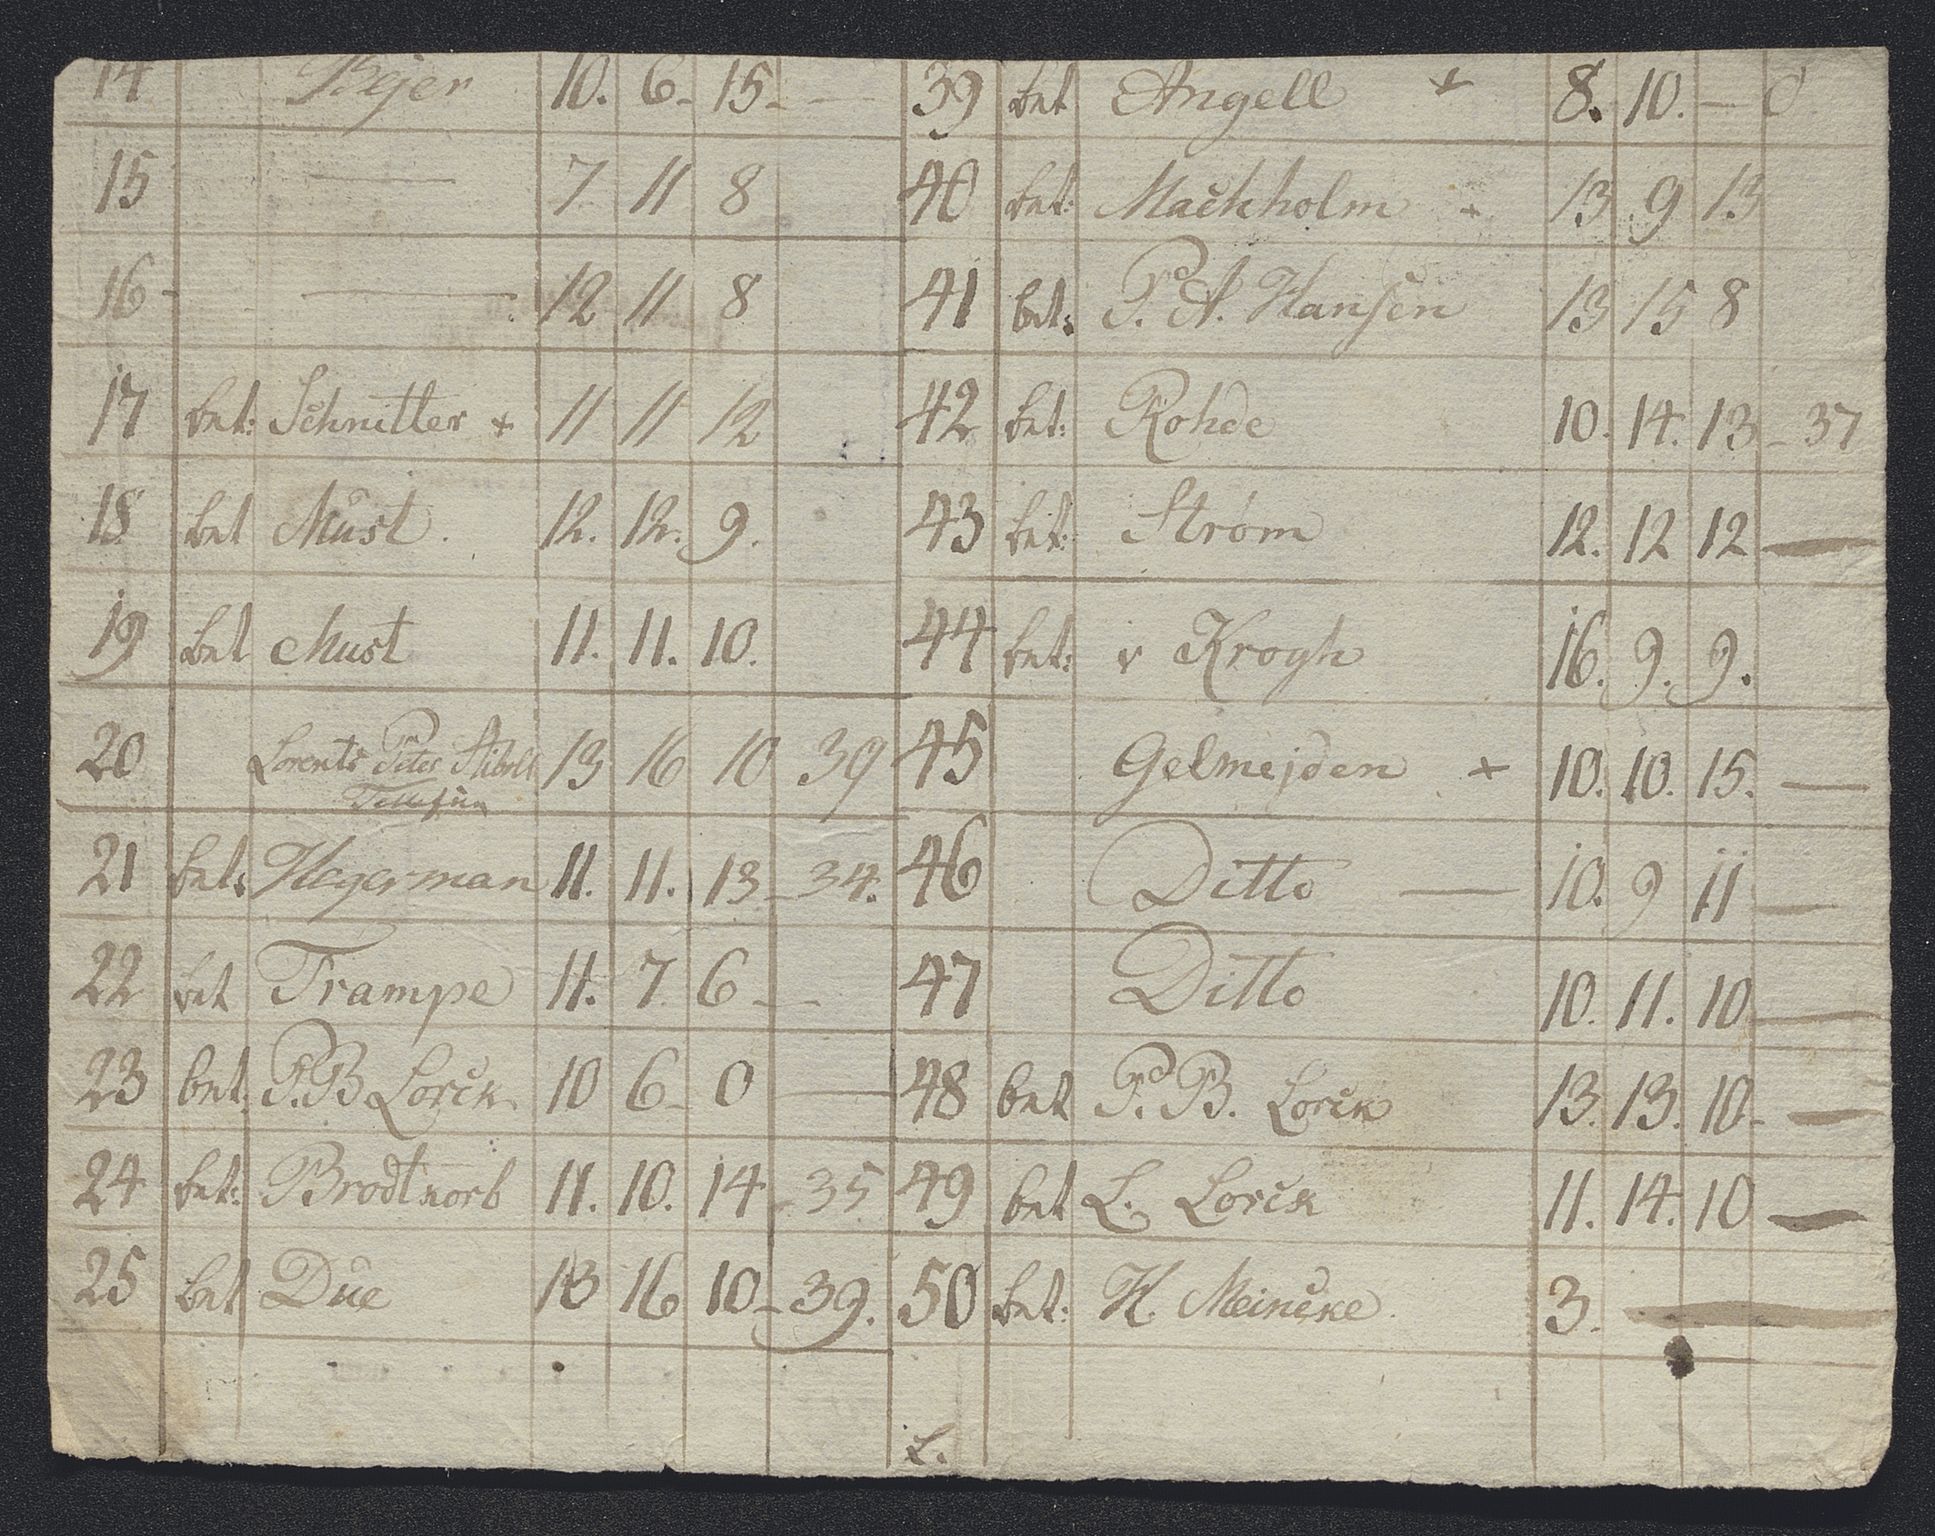 14 Bejer 10. 6 - 15 - —
15 — 7 11 8
16 - — 12 11 8
17 bet: Schnitler + 11 11 12
18 bet Must. 12. 12. 9.
19 bet Must 11. 11. 10.
20 Lorents Peter 13 16 10 39
21 bet: Hegerman 11. 11. 13 - 34.
22 bet Trampe 11. 7. 6 - —
23 bet: P. B Lorck 10 6 - 0 —
24 bet: Brodtkorb 11. 10. 14 - 35
25 bet Due 13 16 10 - 39.
39 bet Angell + 8. 10. — 0
40 bet: Mackholm + 13 9 13
41 bet: P. A. Hansen 13 15 8
42 bet: Rohde 10. 14. 13 - 37
43 bet: Strøm 12. 12 12 —
44 bet: v Krogh 16. 9. 9.
45 Gelmejden + 10. 10. 15. —
46 Ditto — 10. 9 11 —
47 Ditto 10. 11. 10 —
48 bet P. B. Lorck 13. 13. 10 - —
49 bet L. Lorck 11. 14. 10 —
50 bet: H. Meincke. 3. —
L.